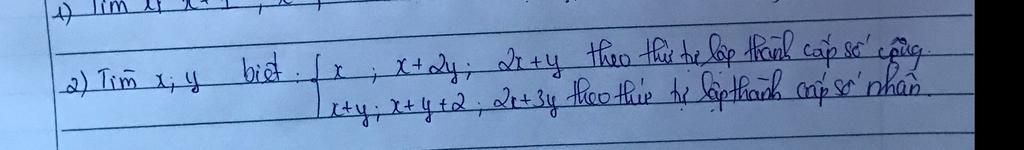 1)
2) Tìm x; y biết: { x ; x+2y ; 2x+y theo thứ tự lập thành cấp số cộng.
x+y ; x+y+2 ; 2x+3y theo thứ tự lập thành cấp số nhân.